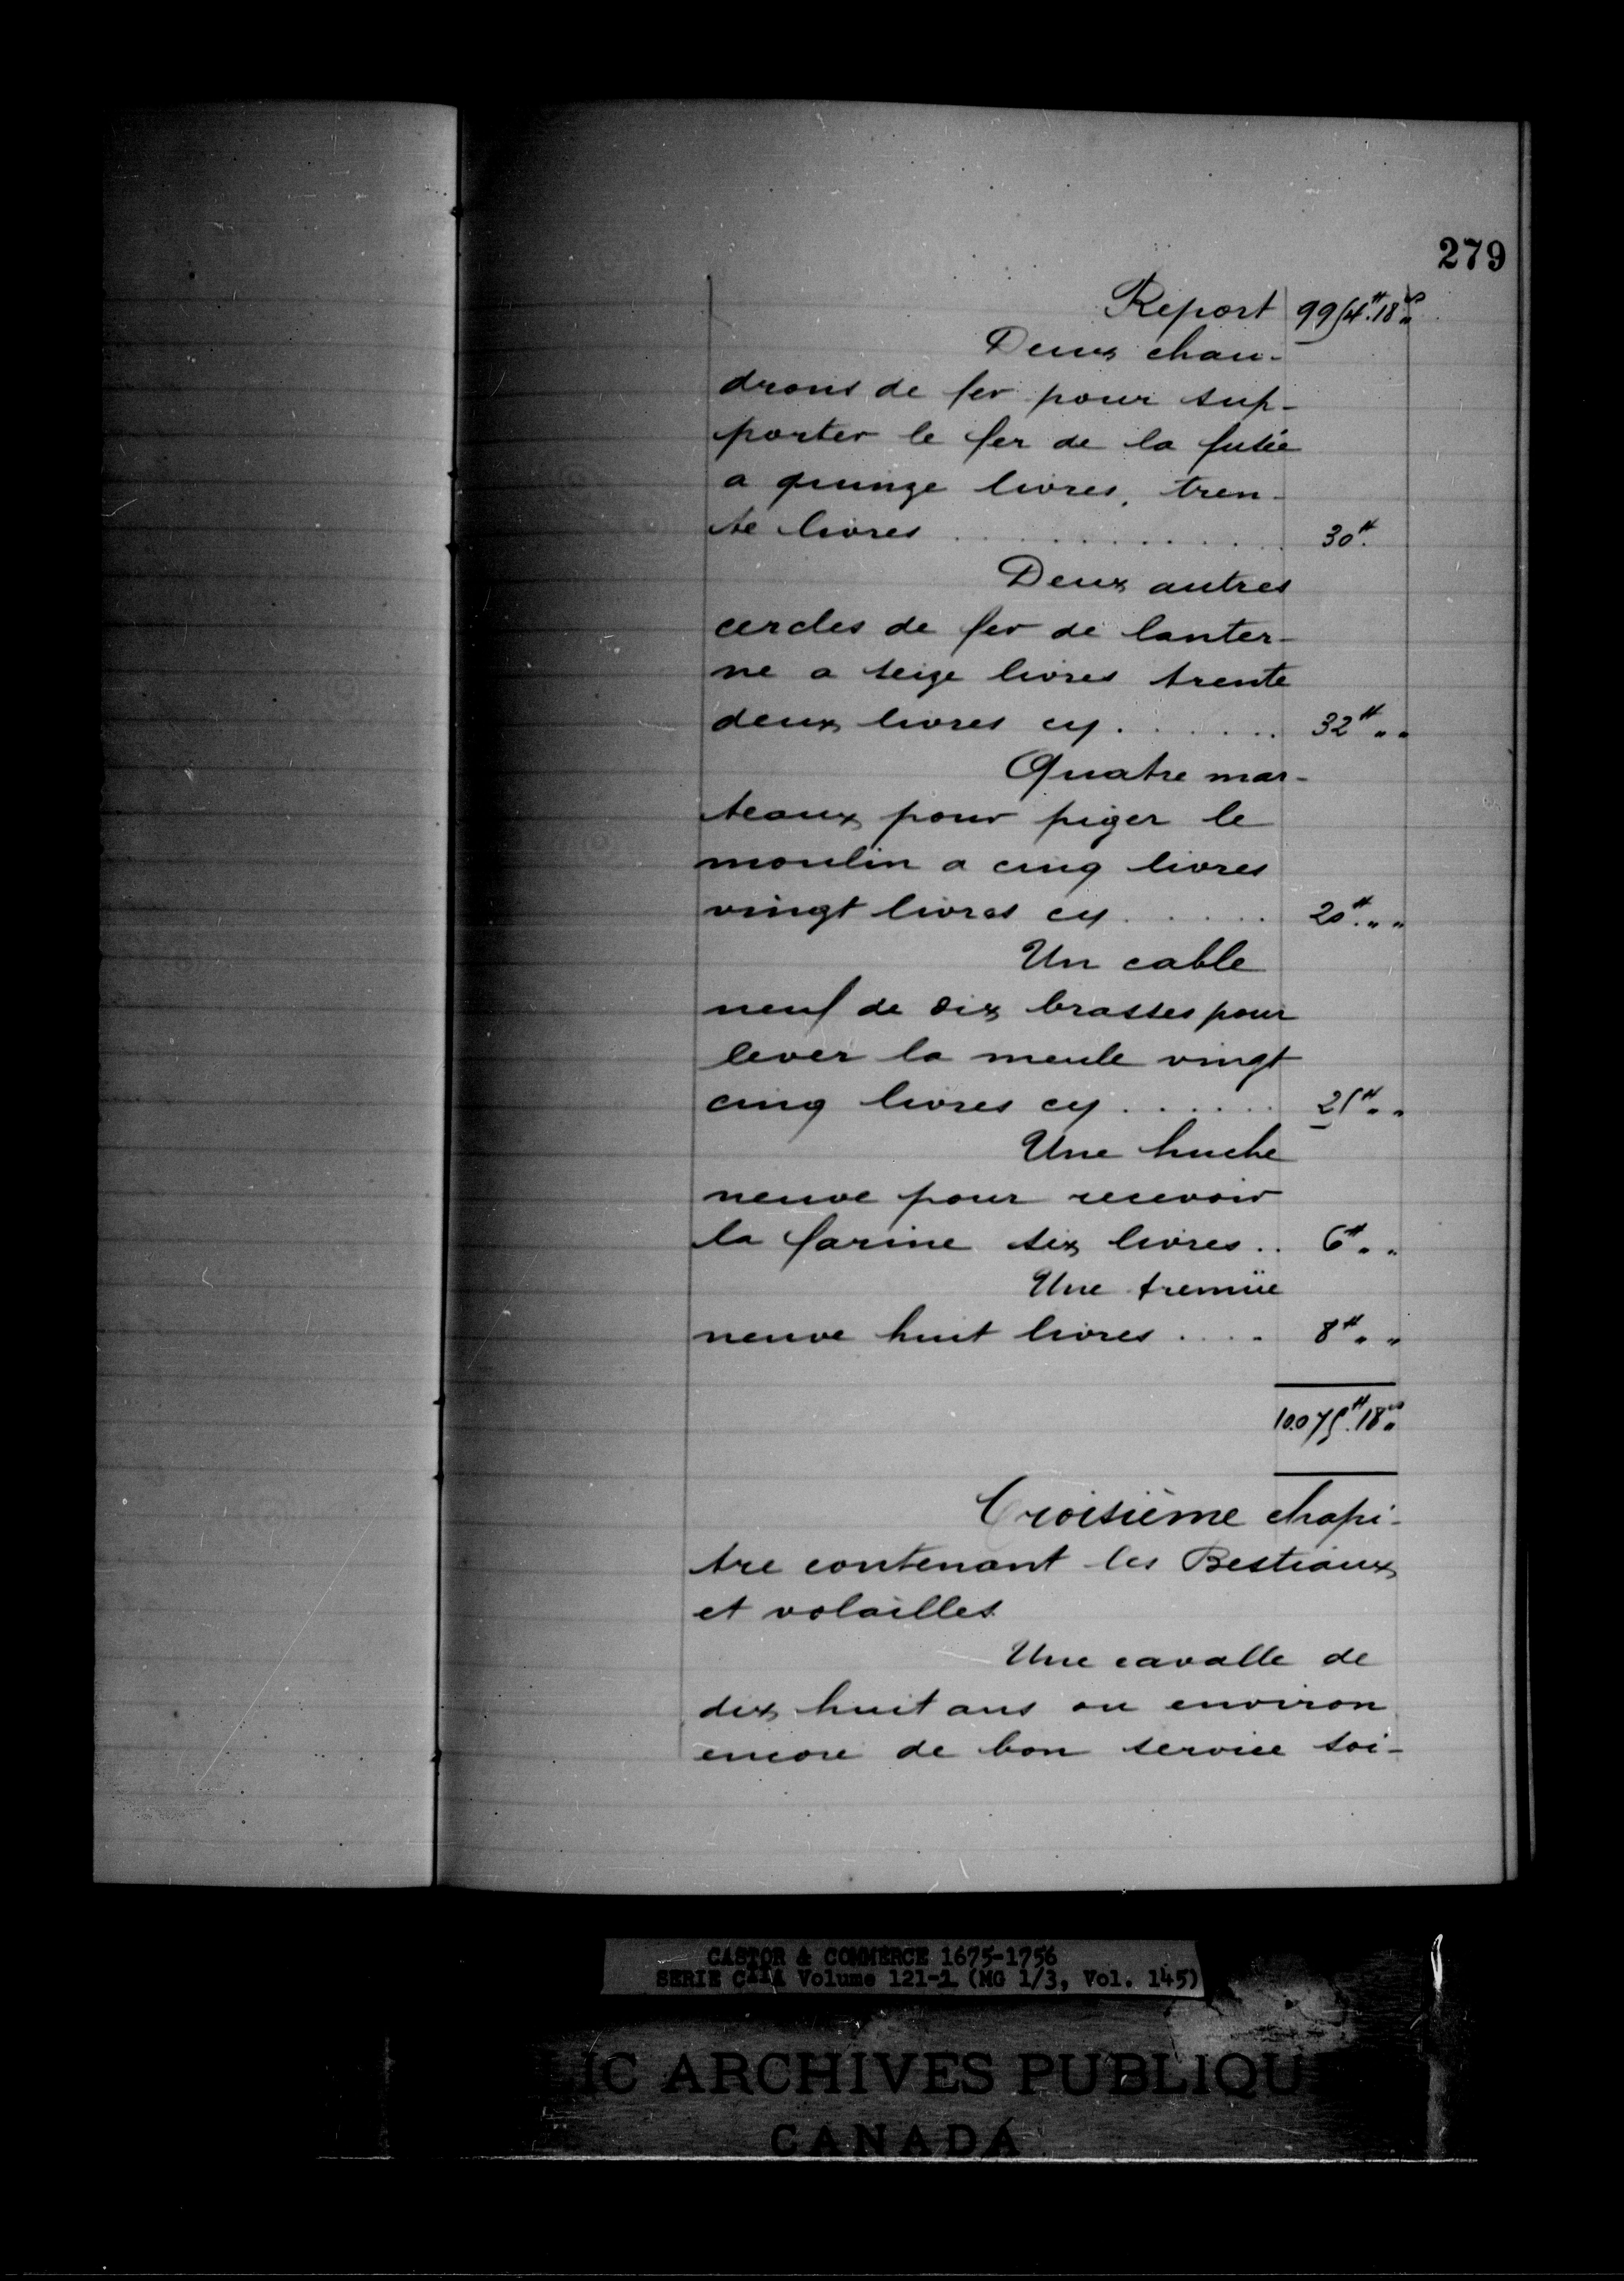 279
Report 9954#.18s
Deux chau-
drons de fer pour sup-
porter le fer de la fusée
a quinze livres, tren-
te livres . . . . . . . . . . . . 30#.
Deux autres
cercles de fer de lanter-
ne a seize livres trente
deux livres cy . . . . . . . 32# " "
Quatre mar-
teaux pour piger le
moulin a cinq livres
vingt livres cy . . . . . . 20#. " "
Un cable
neuf de six brasses pour
lever la meule vingt
cinq livres cy . . . . . . 25# " "
Une huche
neuve pour recevoir
la farine six livres . . 6# " "
Une tremüe
neuve huit livres . . . . 8# " "
10.075#.18s
Troisième chapi-
tre contenant les Bestiaux
et volailles.
Une cavalle de
dix huit ans ou environ
encore de bon service soi-
CASTOR & COMMERCE 1675-1756
SERIE C11A Volume 121-1 (MG 1/3, Vol. 145)
IC ARCHIVES PUBLIQU
CANADA